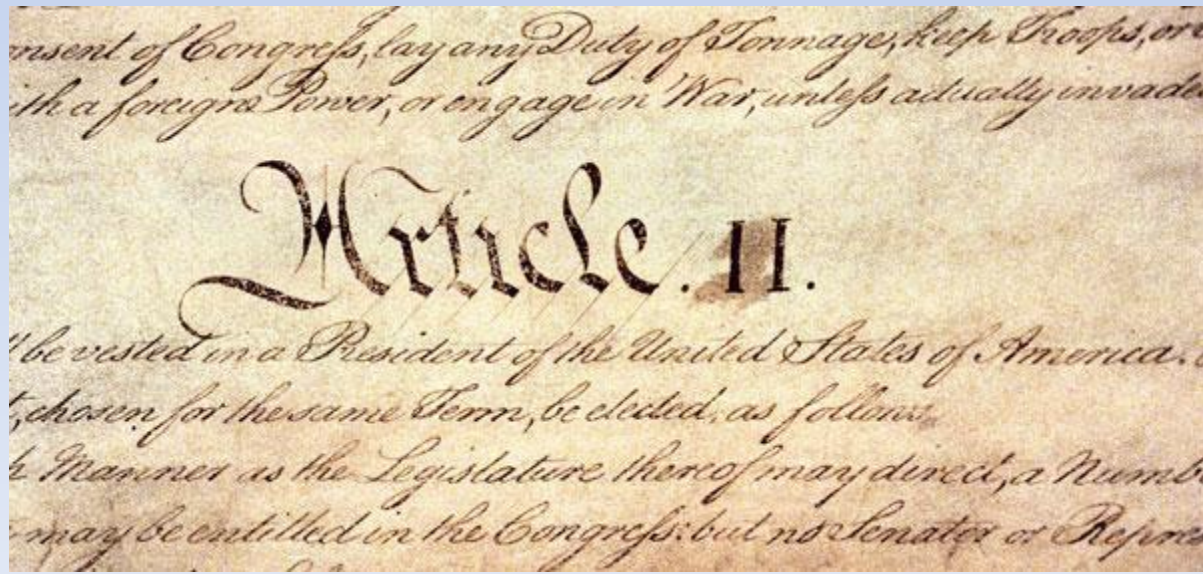 onsent of Congreſs, lay any Duty of Tonnage, keep Troops, or
ith a foreign Power, or engage in War, unleſs actually invade
Article. II.
ll be vested in a President of the United States of America.
t, chosen for the same Term, be elected, as follows
h Manner as the Legislature thereof may direct, a Numb
may be entitled in the Congreſs: but no Senator or Repre